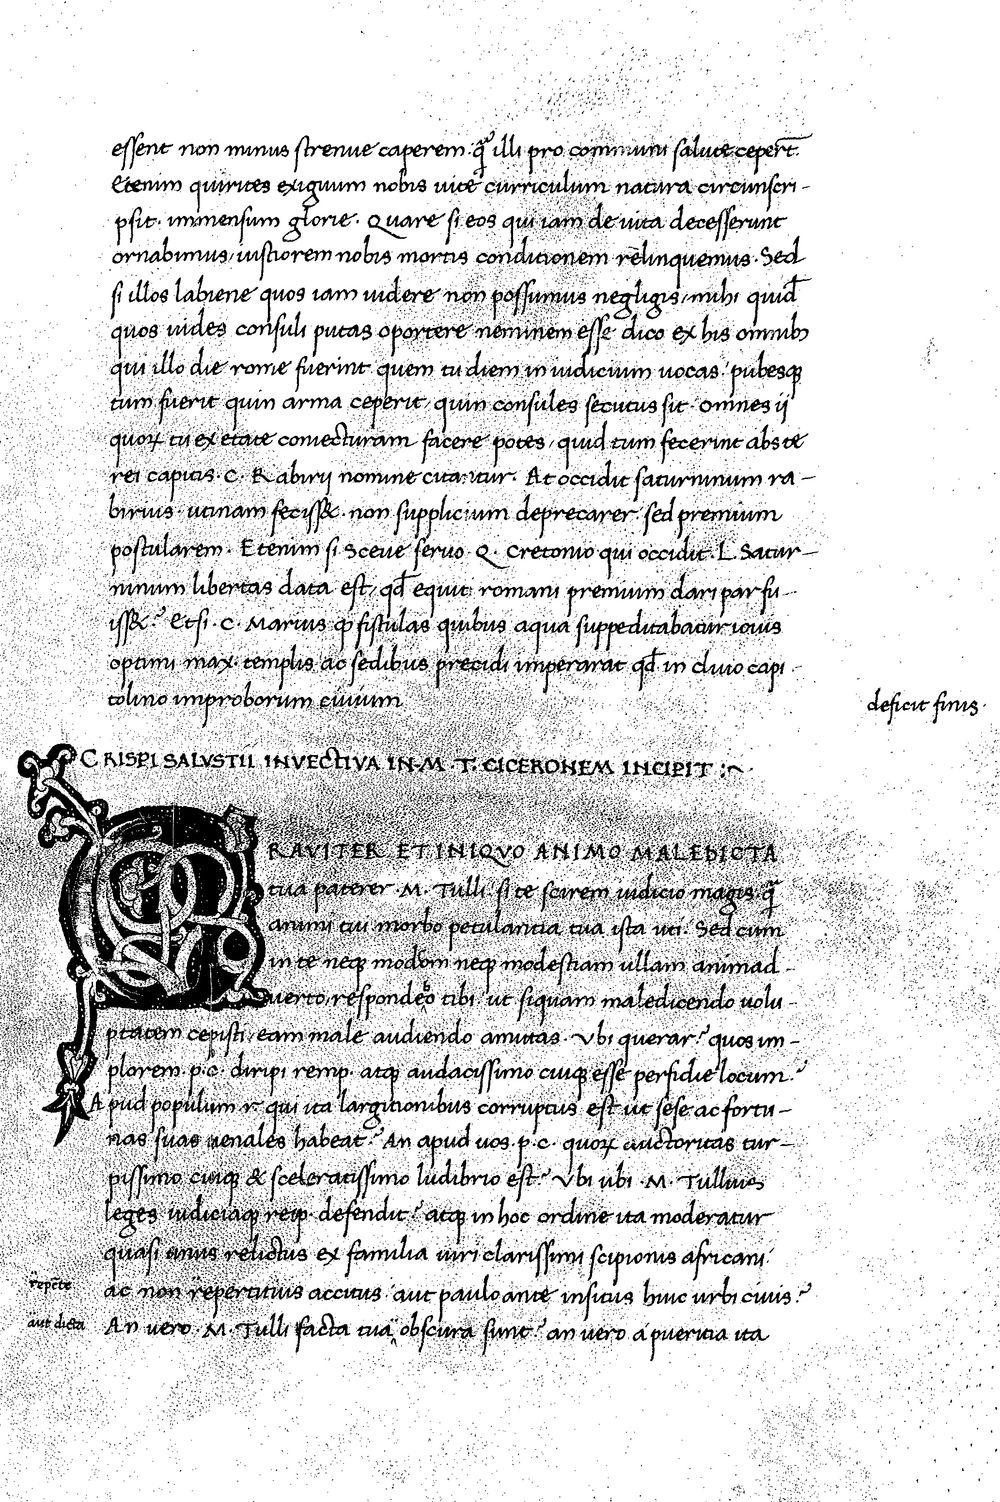 essent non minus strenue caperem q̄ illi pro communi salute ceper̄t.
Etenim quirites exiguum nobis uitę curriculum natura circunscri-
psit. immensum glorie. Quare si eos qui iam de uita decesserunt
ornabimus, iustiorem nobis mortis conditionem relinquemus. Sed
si illos labiene quos iam uidere non possumus negligis, mihi quid̄
quos uides consuli putas oportere neminem esse dico ex his omnib;
qui illo die rome fuerint quem tu diem in iudicium uocas. pubesq;
tum fuerit quin arma ceperit, quin consules secutus sit. omnes ii
quoꝝ tu ex etate coniecturam facere potes, quid tum fecerint abs te
rei capitis. C. Rabirii nomine citantur. At occidit saturninum ra-
birius. utinam feciss&. non supplicium deprecarer sed premium
postularem. Etenim si Sceue seruo Q. Cretonio qui occidit. L. Satur-
ninum libertas data est, qd̄ equiti romani premium dari par fu-
iss&? Etsi. C. Marius ꝙ fistulas quibus aqua suppeditabatur iouis
optimi max. templis ac sedibus precidi imperarat qd̄ in cliuo capi-
tolino improborum ciuium
deficit finis.
CRISPI SALVSTII INVECTIVA IN M. T. CICERONEM INCIPIT :~
GRAVITER ET INIQVO ANIMO MALEDICTA
tua paterer. M. Tulli. si te scirem iudicio magis. q̄
animi tui morbo petulantia tua ista uti. Sed cum
in te neq; modum neq; modestiam ullam animad-
uerto, respondeo tibi. ut siquam maledicendo uolu-
ptatem cepisti, eam male audiendo amittas. Vbi querar? quos im-
plorem. p. c. diripi remp. atq; audacissimo cuiq; esse perfidie locum.?
Apud populum r. qui ita largitionibus corruptus est ut sese ac fortu-
nas suas uenales habeat? An apud uos. p. c. quoꝝ auctoritas tur-
pissimo cuiq; & sceleratissimo ludibrio est? Vbi ubi. M. Tullius
leges iudiciaq; reip. defendit? atq; in hoc ordine ita moderatur
quasi unus relictus ex familia uiri clarissimi scipionis africani.
r̈epēte
ac non r̈epertitius accitus. aut paulo ante insitus huic urbi ciuis.?
aut dicta
An vero. M. Tulli facta tua obscura sunt? an uero a pueritia ita